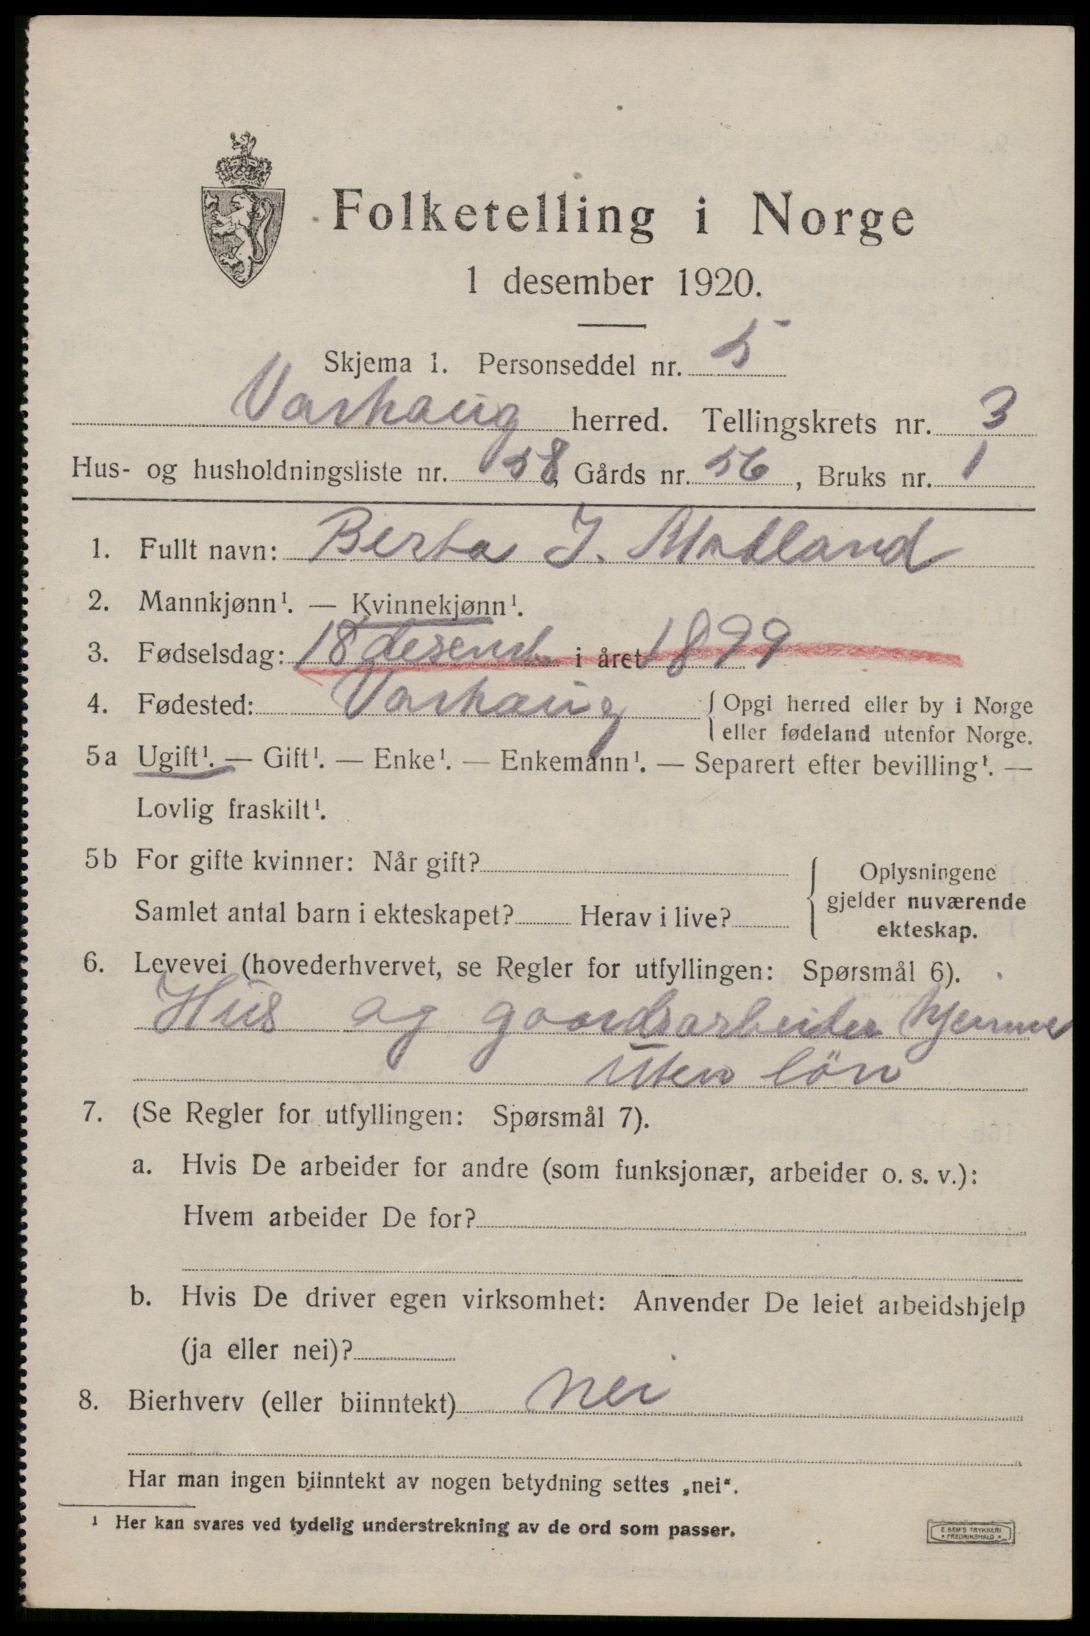 Folketelling i Norge
1 desember 1920.
Skjema 1. Personseddel nr. 5
Varhaug herred. Tellingskrets nr. 3
Hus- og husholdningsliste nr. 58, Gårds nr. 56, Bruks nr. 1
1. Fullt navn: Berta J. Matland
2. Mannkjønn¹. — Kvinnekjønn¹.
3. Fødselsdag: 18 desemb. i året 1899
4. Fødested: Varhaug { Opgi herred eller by i Norge
eller fødeland utenfor Norge.
5a Ugift¹. — Gift¹. — Enke¹. — Enkemann¹. — Separert efter bevilling¹. —
Lovlig fraskilt¹.
5b For gifte kvinner: Når gift? { Oplysningene
Samlet antal barn i ekteskapet? Herav i live? gjelder nuværende
ekteskap.
6. Levevei (hovederhvervet, se Regler for utfyllingen: Spørsmål 6).
Hus og gaardsarbeider hjemme
uten løn
7. (Se Regler for utfyllingen: Spørsmål 7).
a. Hvis De arbeider for andre (som funksjonær, arbeider o. s. v.):
Hvem arbeider De for?
b. Hvis De driver egen virksomhet: Anvender De leiet arbeidshjelp
(ja eller nei)?
8. Bierhverv (eller biinntekt) nei
Har man ingen biinntekt av nogen betydning settes „nei“.
¹ Her kan svares ved tydelig understrekning av de ord som passer.
E. SEM'S TRYKKERI
• FREDRIKSHALD •